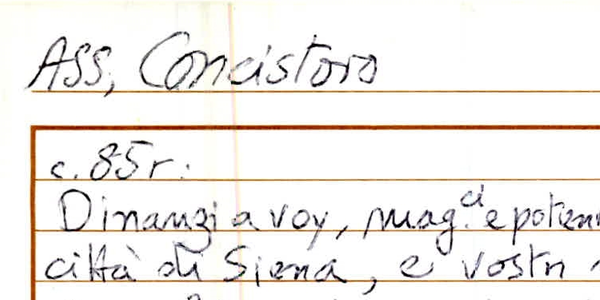 ASS, Concistoro
c. 85r:
Dinanzi a voy, mag.ci e potenn
città di Siena, e vostri